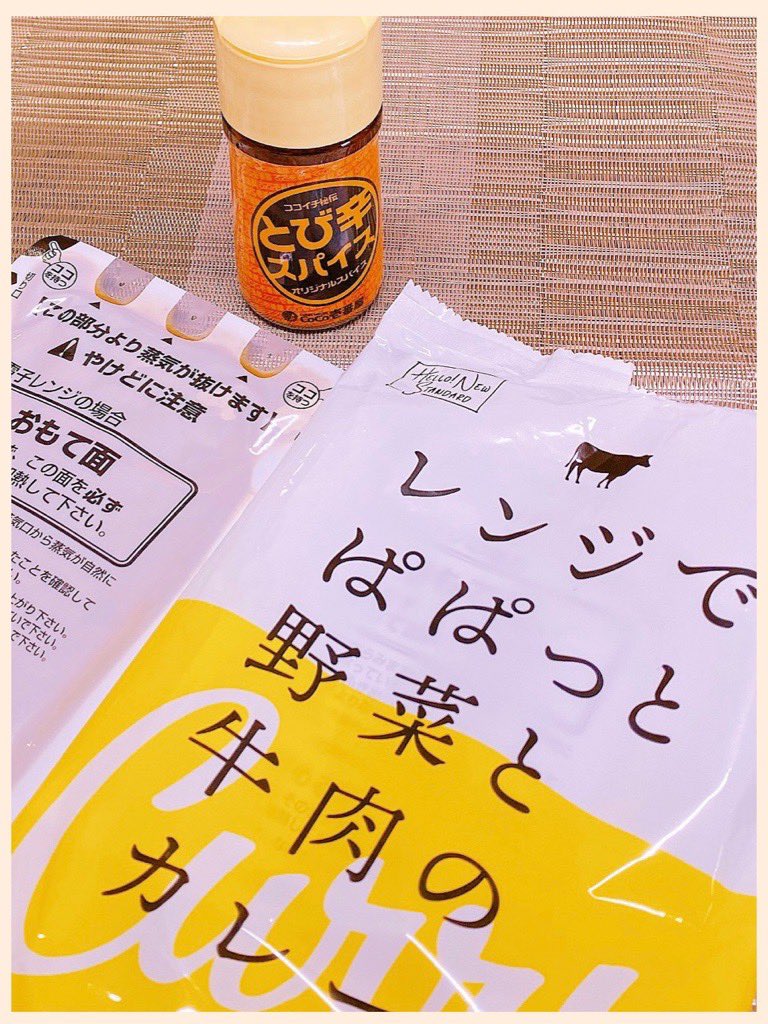 ココイチ秘伝
とび辛
スパイス
オリジナルスパイス
CoCo壱番屋
ココ
を持つ
【この部分より蒸気が抜けます】
やけどに注意
ココ
を持つ
子レンジの場合
おもて面
この面を必ず
熱して下さい。
気口から蒸気が自然に
たことを確認して
い。
上がり下さい。
いで下さい。
で下さい。
HELLO! NEW
STANDARD
レンジで
ぱぱっと
野菜と
牛肉の
カレー
Curry